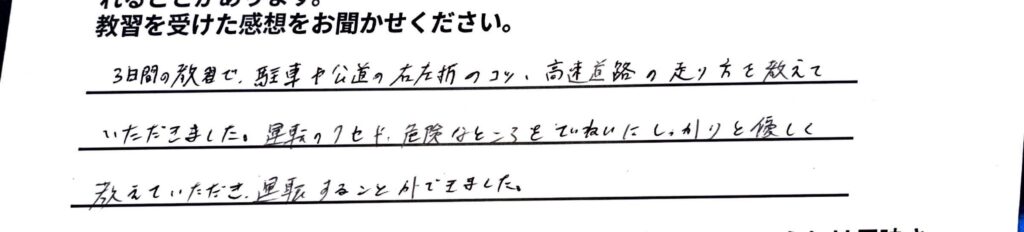 れることがあります。
教習を受けた感想をお聞かせください。
3日間の教習で、駐車や公道の右左折のコツ、高速道路の走り方を教えて
いただきました。運転のクセや、危険なところをていねいにしっかりと優しく
教えていただき、運転することができました。